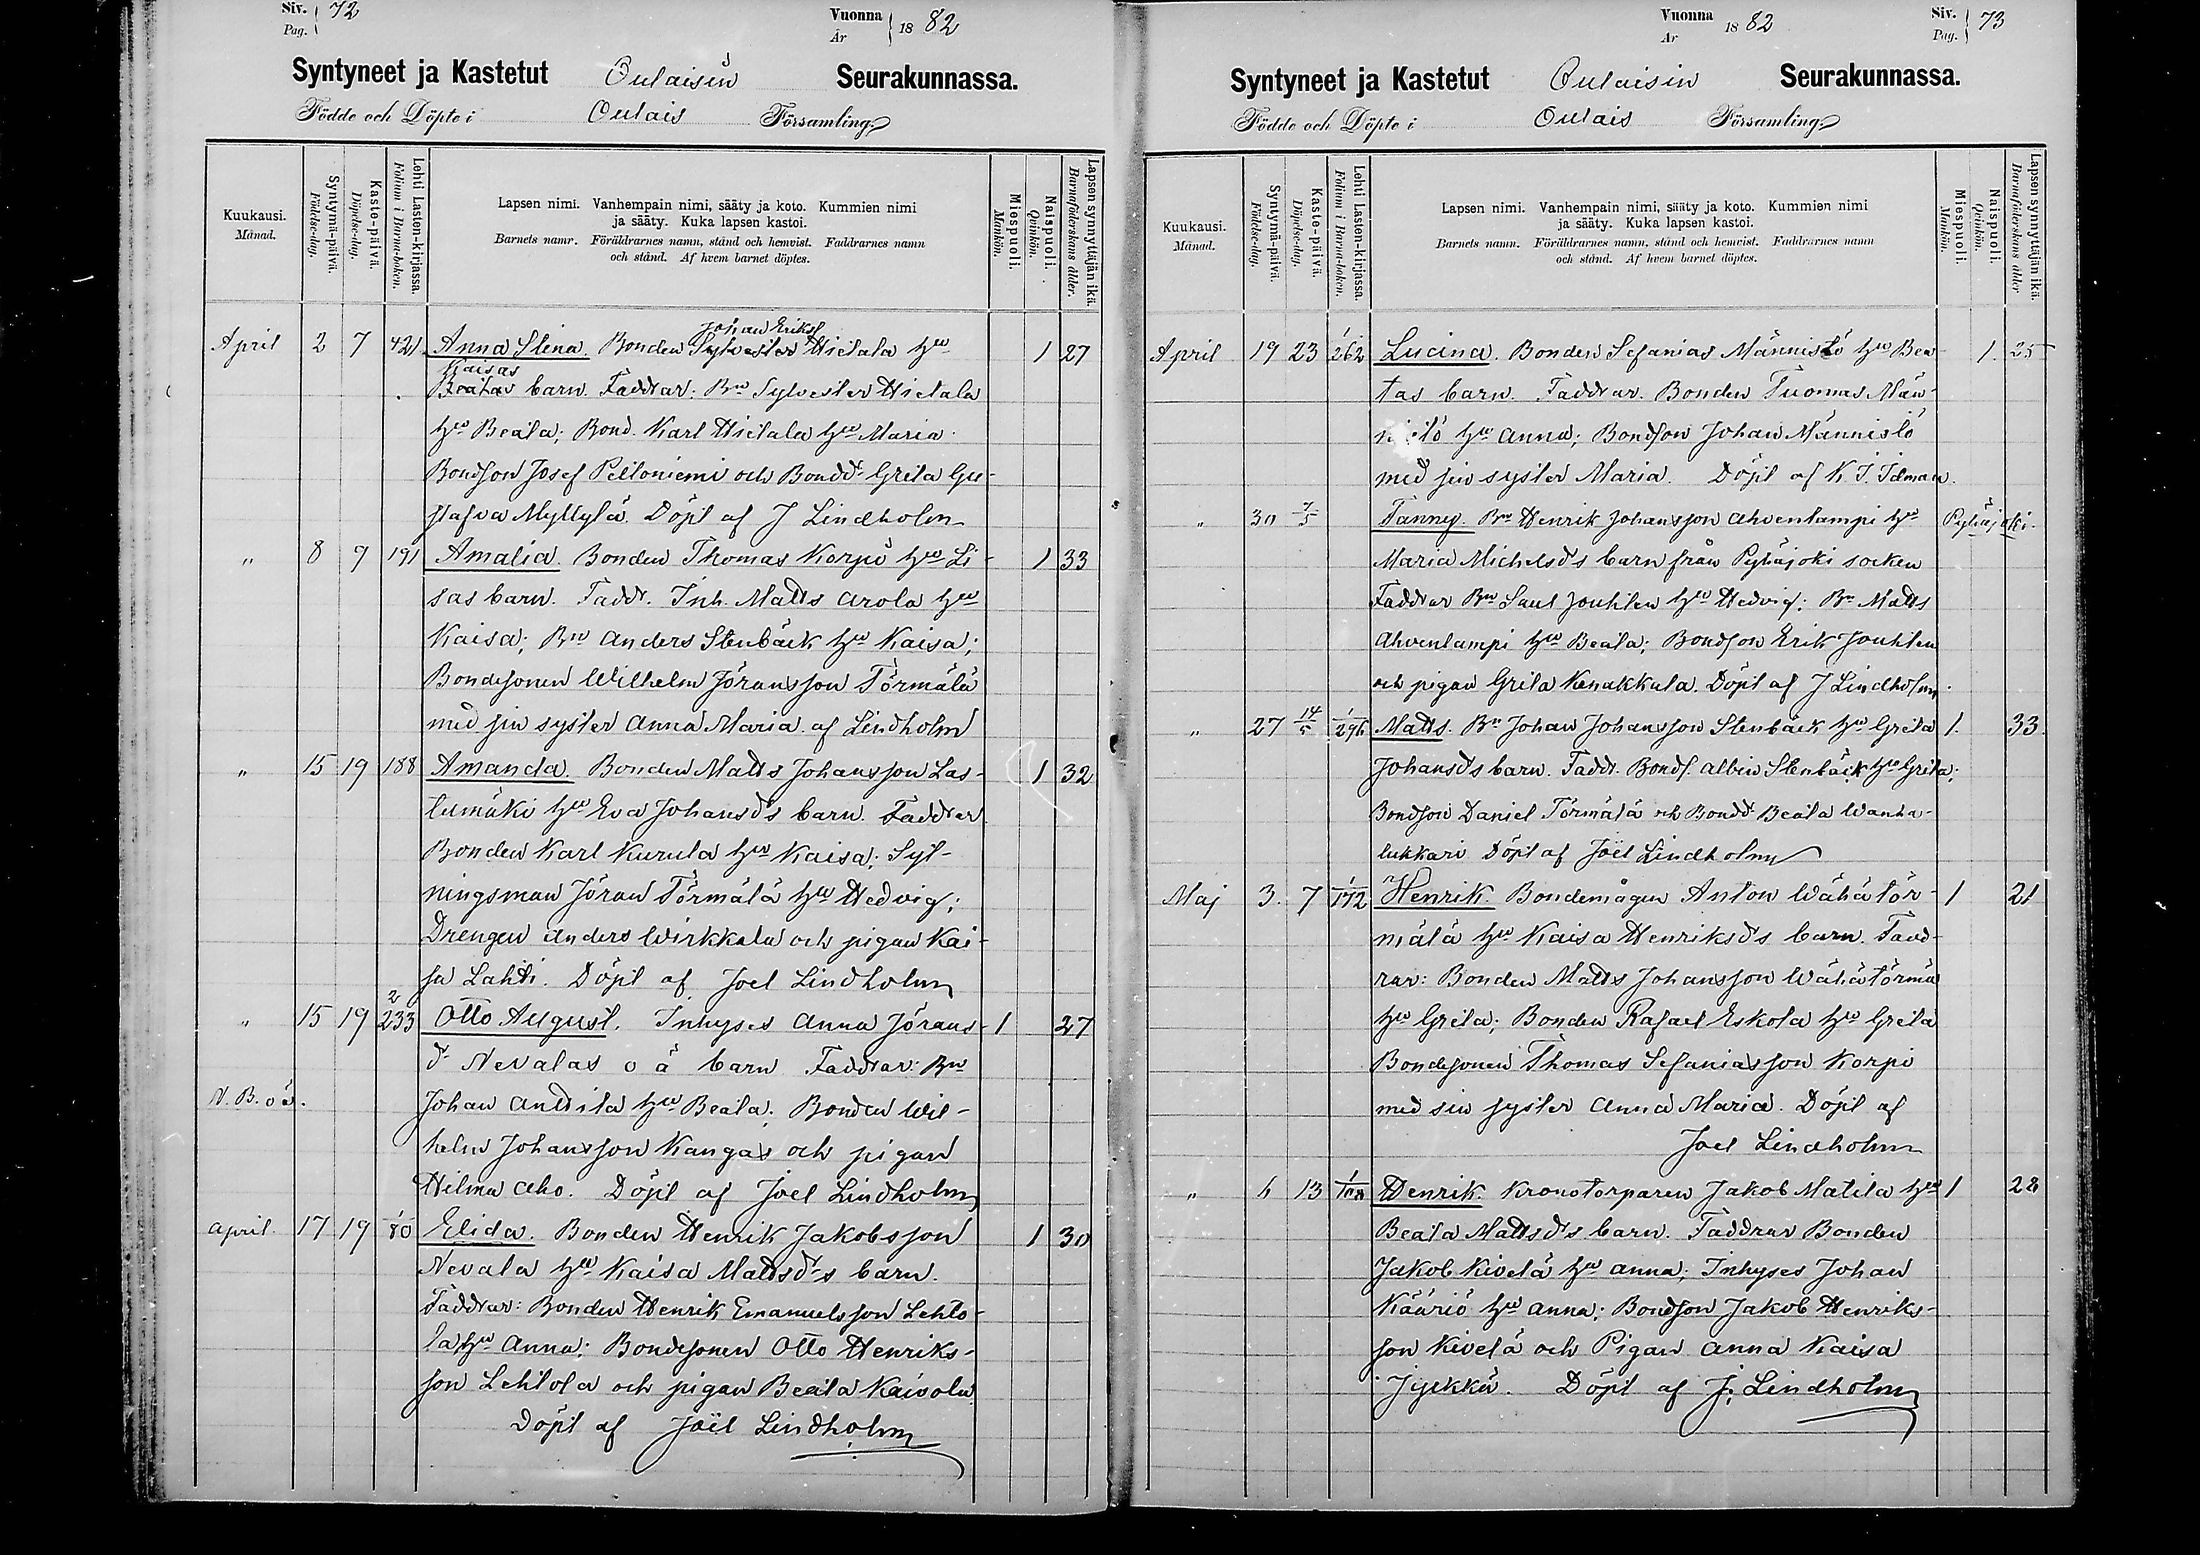 Siv. 72
Pag.
Vuonna 1882
År
Syntyneet ja Kastetut Oulaisin Seurakunnassa.
Födde och Döpte i Oulais Församling
Kuukausi. Månad.
Syntymä-päivä. Födelse-dag.
Kaste-päivä. Döpelse-dag.
Lehti Lasten-kirjassa. Folium i Barna-boken.
Lapsen nimi. Vanhempain nimi, sääty ja koto. Kummien nimi
ja sääty. Kuka lapsen kastoi.
Barnets namr. Föräldrarnes namn, stånd och hemvist. Faddrarnes namn
och stånd. Af hvem barnet döptes.
Miespuoli. Mankön.
Naispuoli. Qvinkön.
Lapsen synnyttäjän ikä. Barnaföderskans ålder.
Johan Eriks
April 2 7 421 Anna Stina. Bonden Sylvester Hietala hu 1 27
Kaisas
Beatas barn. Faddrar: Bn Sylvester Hietala
hu Beata; Bond. Karl Hietala hu Maria
Bondson Josef Peltoniemi och Bondd. Greta Gu-
stafva Myllylä. Döpt af J Lindholm
" 8 9 191 Amalia. Bonden Thomas Korpi hu Li- 1 33
sas barn. Faddr. Inh. Matts Arola hu
Kaisa; Bn Anders Stenbäck hu Kaisa;
Bondesonen Wilhelm Jöransson Törmälä
med sin syster Anna Maria. af Lindholm
" 15 19 188 Amanda. Bonden Matts Johansson Las- 1 32
tumäki hu Eva Johansd:s barn. Faddrar
Bonden Karl Kurula hu Kaisa; Syt-
ningsman Jöran Törmälä hu Hedvig;
Drengen Anders Wirkkala och pigan Kai-
sa Lahti. Döpt af Joel Lindholm
" 15 19 2/233 Otto August. Inhyses Anna Jörans- 1 27
d: Nevalas o ä barn Faddrar: Bn
N. B. o ä. Johan Anttila hu Beata; Bonden Wil-
helm Johansson Kangas och pigan
Hilma Aho. Döpt af Joel Lindholm
April 17 19 1/80 Elida. Bonden Henrik Jakobsson 1 30
Nevala hu Kaisa Mattsd:s barn.
Faddrar: Bonden Henrik Emanuelsson Lehto-
la hu Anna; Bondesonen Otto Henriks-
son Lehtola och pigan Beata Kaivola
Döpt af Joël Lindholm
Vuonna 1882
År
Siv. 73
Pag.
Syntyneet ja Kastetut Oulaisin Seurakunnassa.
Födde och Döpte i Oulais Församling
Kuukausi. Månad.
Syntymä-päivä. Födelse-dag.
Kaste-päivä. Döpelse-dag.
Lehti Lasten-kirjassa. Folium i Barna-boken.
Lapsen nimi. Vanhempain nimi, sääty ja koto. Kummien nimi
ja sääty. Kuka lapsen kastoi.
Barnets namn. Föräldrarnes namn, stånd och hemvist. Faddrarnes namn
och stånd. Af hvem barnet döptes.
Miespuoli. Mankön.
Naispuoli. Qvinkön.
Lapsen synnyttäjän ikä. Barnaföderskans ålder
April 19 23 1/262 Lucina. Bonden Sefanias Männistö hu Bea- 1. 25
tas barn. Faddrar. Bonden Tuomas Män-
nistö hu Anna; Bondson Johan Männistö
med sin syster Maria. Döpt af K. I. Idman.
" 30 7/5 Fanny. Bn Henrik Johansson Ahventampi hu Pyhäjoki.
Maria Michelsd:s barn från Pyhäjoki socken
Faddrar Bn Saul Jouhten hu Hedvig; Bn Matts
Ahventampi hu Beata; Bondson Erik Jouhten
och pigan Greta Kenakkala. Döpt af J Lindholm.
" 27 14/5 1/296 Matts. Bn Johan Johansson Stenbäck hu Greta 1. 33
Johansd:s barn. Faddr. Bonds. Albin Stenbäck hu Greta;
Bondson Daniel Törmälä och Bondd. Beata Wanha-
lukkari Döpt af Joël Lindholm
Maj 3. 7 1/172 Henrik. Bondemågen Anton Wähätör- 1 21
mälä hu Kaisa Henriksd:s barn. Fadd-
rar: Bonden Matts Johansson Wähätörmä
hu Greta; Bonden Rafael Eskola hu Greta
Bondesonen Thomas Sefaniasson Korpi
med sin syster Anna Maria. Döpt af
Joel Lindholm
" 6 13 Henrik. Kronotorparen Jakob Matila hu 1 28
Beata Mattsd:s barn. Faddrar Bonden
Jakob Kivelä hu Anna; Inhyses Johan
Kääriö hu Anna; Bondson Jakob Henriks-
son Kivelä och Pigan Anna Kaisa
Jyrkkä. Döpt af J. Lindholm